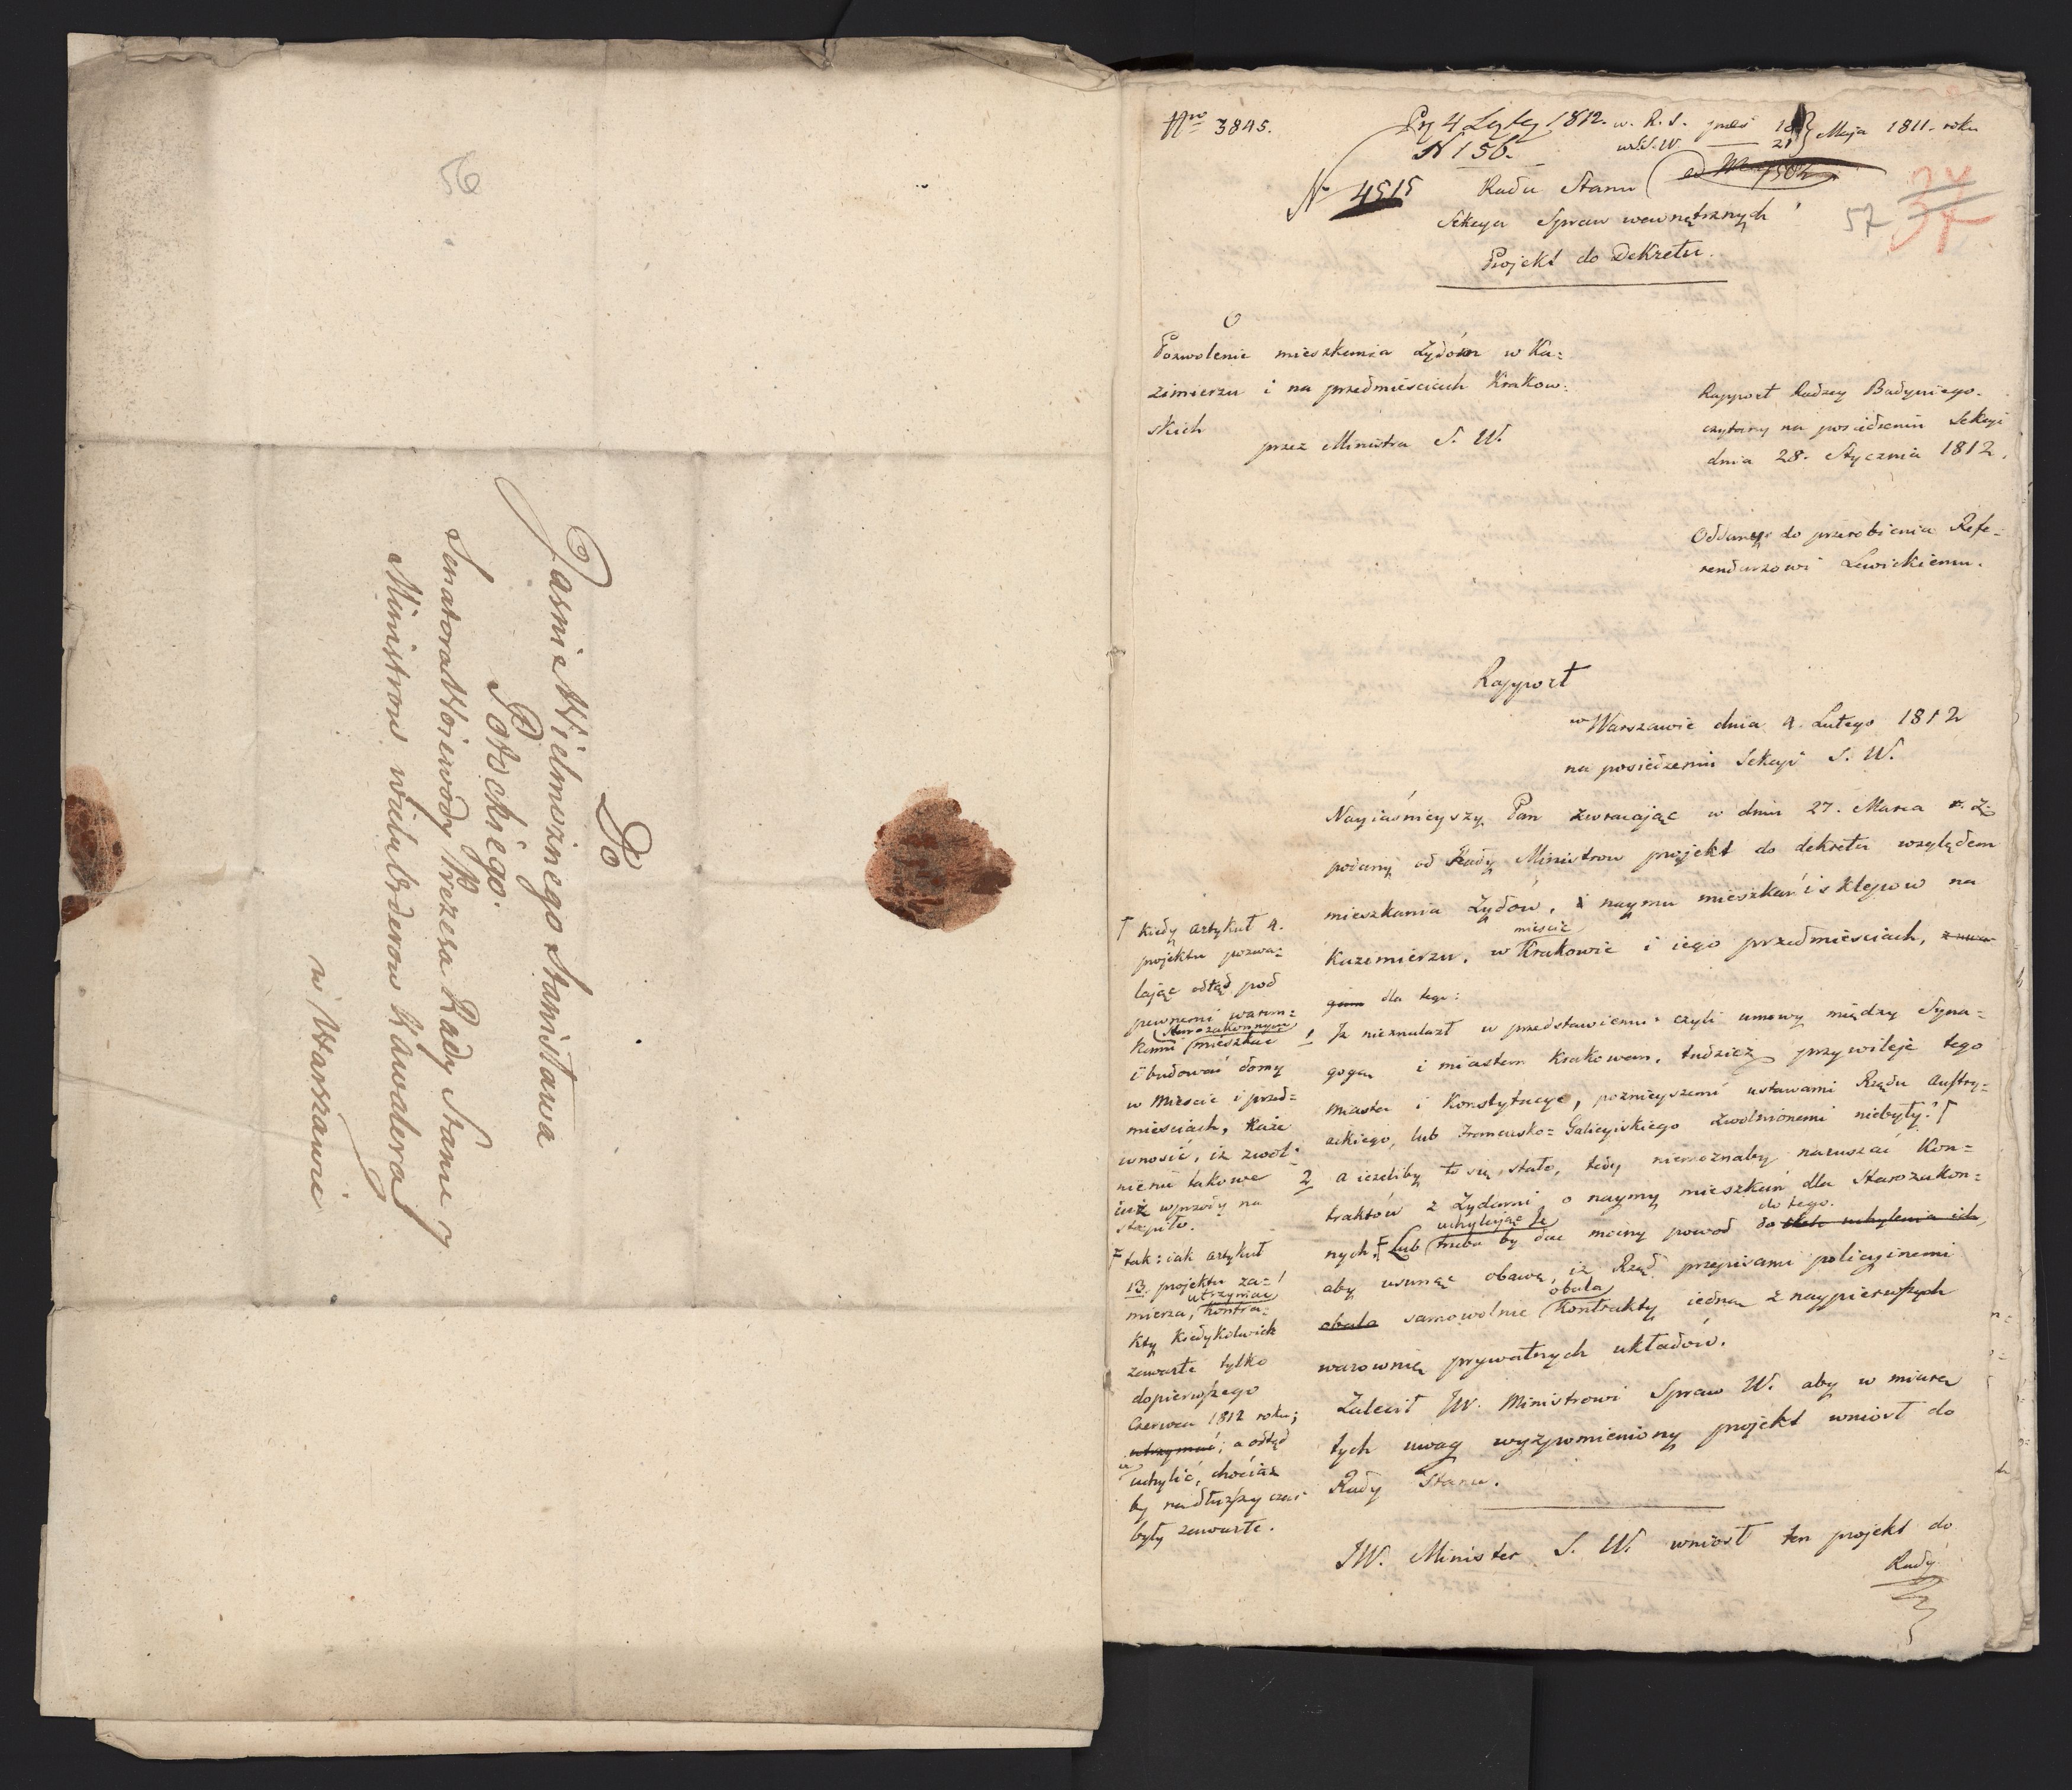 56
Do
Jasnie Wielmożnego Stanisława
Potockiego.
Senatora Woiewody Prezesa Rady Stanu y
Ministrow wielu Orderow Kawalera
w Warszawie
Nro 3845.
4 Lutego 1812. w. R. S. 18 Maja 1811. roku
N 156. w S. W. — 21
N 4515 Rada Stanu
57 37
Sekcya Spraw wewnętrznych
Projekt do Dekretu.
O
Pozwolenie mieszkania Żydóm w Ka=
zimierzu i na przedmieściach Krakow:
skich
przez Ministra S. W.
Rapport Radzcy Badyniego.
czytany na posiedzeniu Sekcyi
dnia 28. Stycznia 1812.
Oddany do przerobienia Refe=
rendarzowi Lewickiemu.
Rapport
w Warszawie dnia 4. Lutego 1812
na posiedzeniu Sekcyi S. W.
Nayiaśnieyszy Pan zwracając w dniu 27. Marca r. z.
podany od Rady Ministrow projekt do dekretu względem
mieszkania Żydów, i naymu mieszkań i sklepow na
mieście
Kazimierzu, w Krakowie i iego przedmieściach,
dla tego:
1 Iż nieznalazł w przedstawieniu czyli umowy między Syna=
gogą i miastem Krakowem, tudzież przywileje tego
Miasta i Konstytucye, poźnieyszemi ustawami Rządu Austry=
ackiego, lub Francusko=Galicyiskiego zwolnionemi niebyły?
2 a ieżeliby to się stało, tedy niemożnaby naruszać Kon=
traktów z Żydami o naymy mieszkań dla Starozakon=
uchylając Je do tego.
nych. Lub trzeba by dac mocny powod do uchylenia ich,
aby usunąc obawę, iż Rząd przepisami policyinemi
obala
obala samowolnie Kontrakty iedną z naypierwszych
warownią prywatnych układów.
Zalecił JW. Ministrowi Spraw W. aby w miarę
tych uwag wyżpomieniony projekt wniosł do
Rady Stanu.
JW. Minister S. W. wniosł ten projekt do
Rady
kiedy artykuł 4.
projektu pozwa=
lając odtąd pod
pewnemi warun=
Starozakonnym
kami mieszkać
i budować domy
w Mieście i przed=
mieściach, każe
wnosić, iż zwol=
nienie takowe
iuż wprzódy na
stąpiło.
tak: iak artykuł
13. projektu za=
utrzymać
mierza, Kontra=
kty kiedykolwiek
zawarte tylko
dopierwszego
Czerwca 1812 roku;
utrzymać; a odtąd
ie
uchylić, chociaż
by na dłuższy czas
były zawarte.